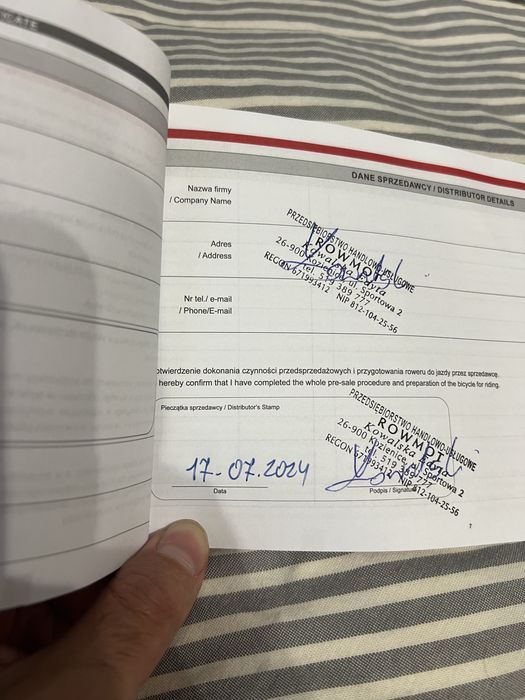 DANE SPRZEDAWCY / DISTRIBUTOR DETAILS
Nazwa firmy
/ Company Name
PRZEDSIĘBIORSTWO HANDLOWO-USŁUGOWE
ROWMOT
Kowalska Edyta
26-900 Kozienice, ul. Sportowa 2
tel. 519 389 777
REGON 671993412 NIP 812-104-25-56
Adres
/ Address
Nr tel./ e-mail
/ Phone/E-mail
otwierdzenie dokonania czynności przedsprzedażowych i przygotowania roweru do jazdy przez sprzedawcę.
hereby confirm that I have completed the whole pre-sale procedure and preparation of the bicycle for riding.
Pieczątka sprzedawcy / Distributor's Stamp
PRZEDSIĘBIORSTWO HANDLOWO-USŁUGOWE
ROWMOT
Kowalska
26-900 Kozienice, ul. Sportowa 2
tel. 519 389 777
REGON 671993412 NIP 812-104-25-56
17-07.2024
Data
Podpis / Signature